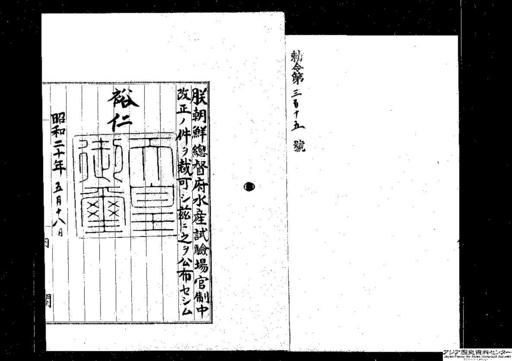 勅令第三百十五號
朕朝鮮總督府水産試驗場官制中
改正ノ件ヲ裁可シ茲ニ之ヲ公布セシム
裕仁
天皇御璽
昭和二十年五月十八日
内閣
アジア歴史資料センター